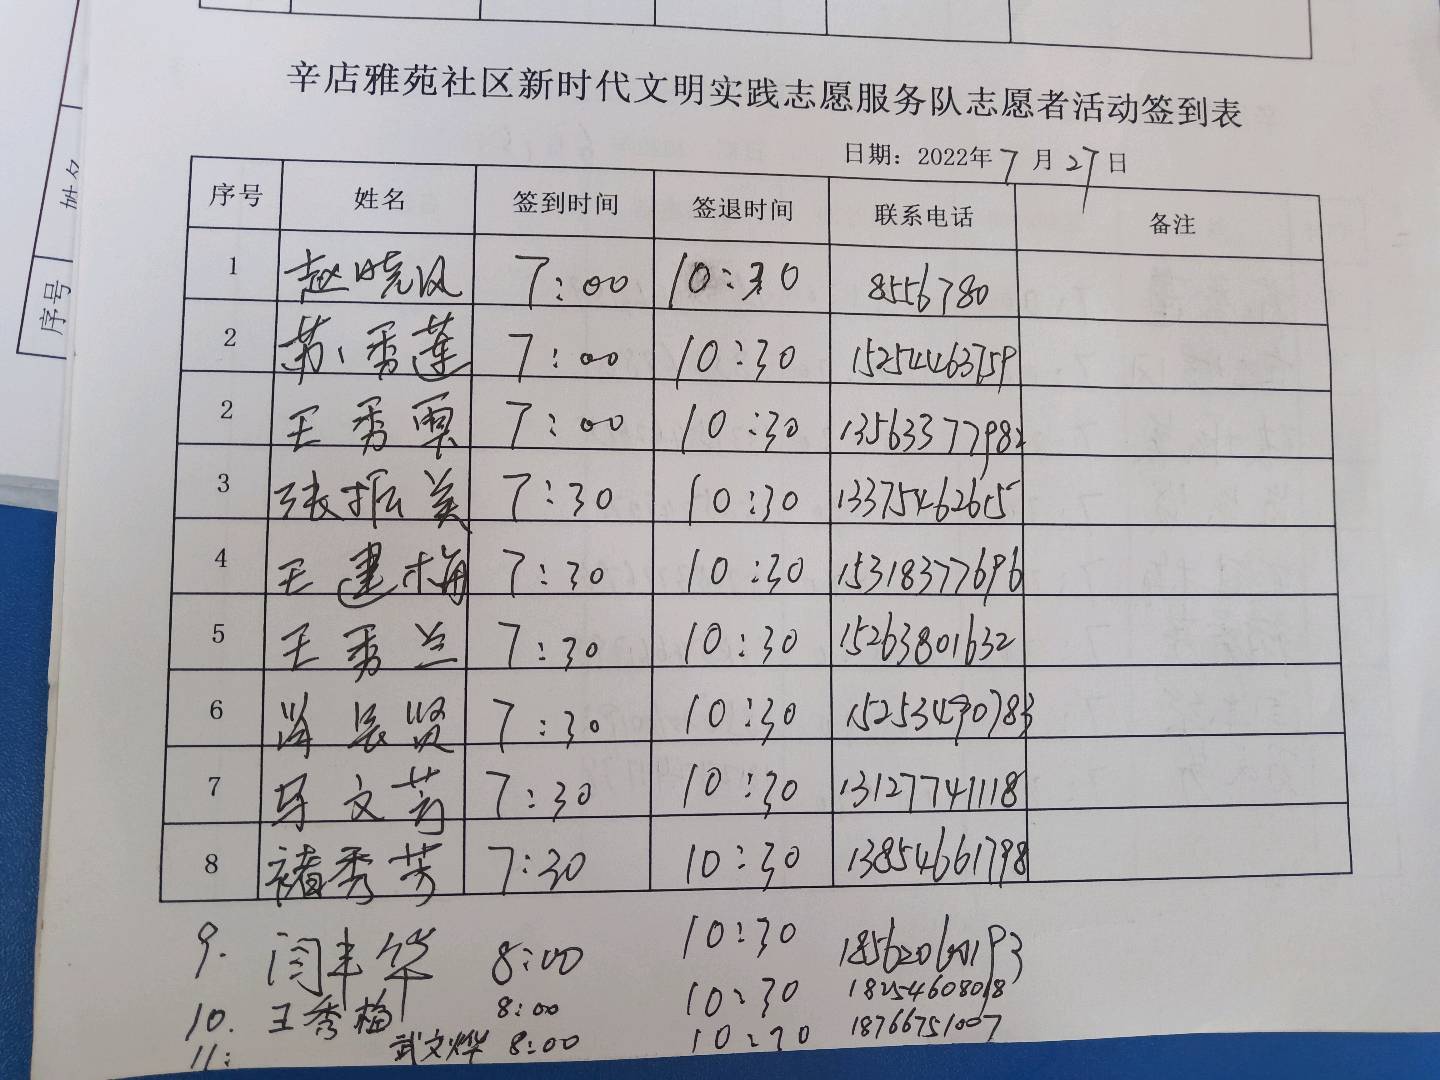 辛店雅苑社区新时代文明实践志愿服务队志愿者活动签到表
日期：2022年7月27日
序号 姓名 签到时间 签退时间 联系电话 备注
1 赵晓风 7:00 10:30 8556780
2 苏秀莲 7:00 10:30 15254463759
2 王秀栗 7:00 10:30 13563377982
3 张振美 7:30 10:30 13375462615
4 王建梅 7:30 10:30 15318377696
5 王秀兰 7:30 10:30 15263801632
6 7:30 10:30 15253490783
7 文芳 7:30 10:30 13127741118
8 褚秀芳 7:30 10:30 13854661798
9. 闫丰华 8:00 10:30 18562060193
10. 王秀梅 8:00 10:30 18254608018
11: 武文烨 8:00 10:30 18766751007
序号 姓名